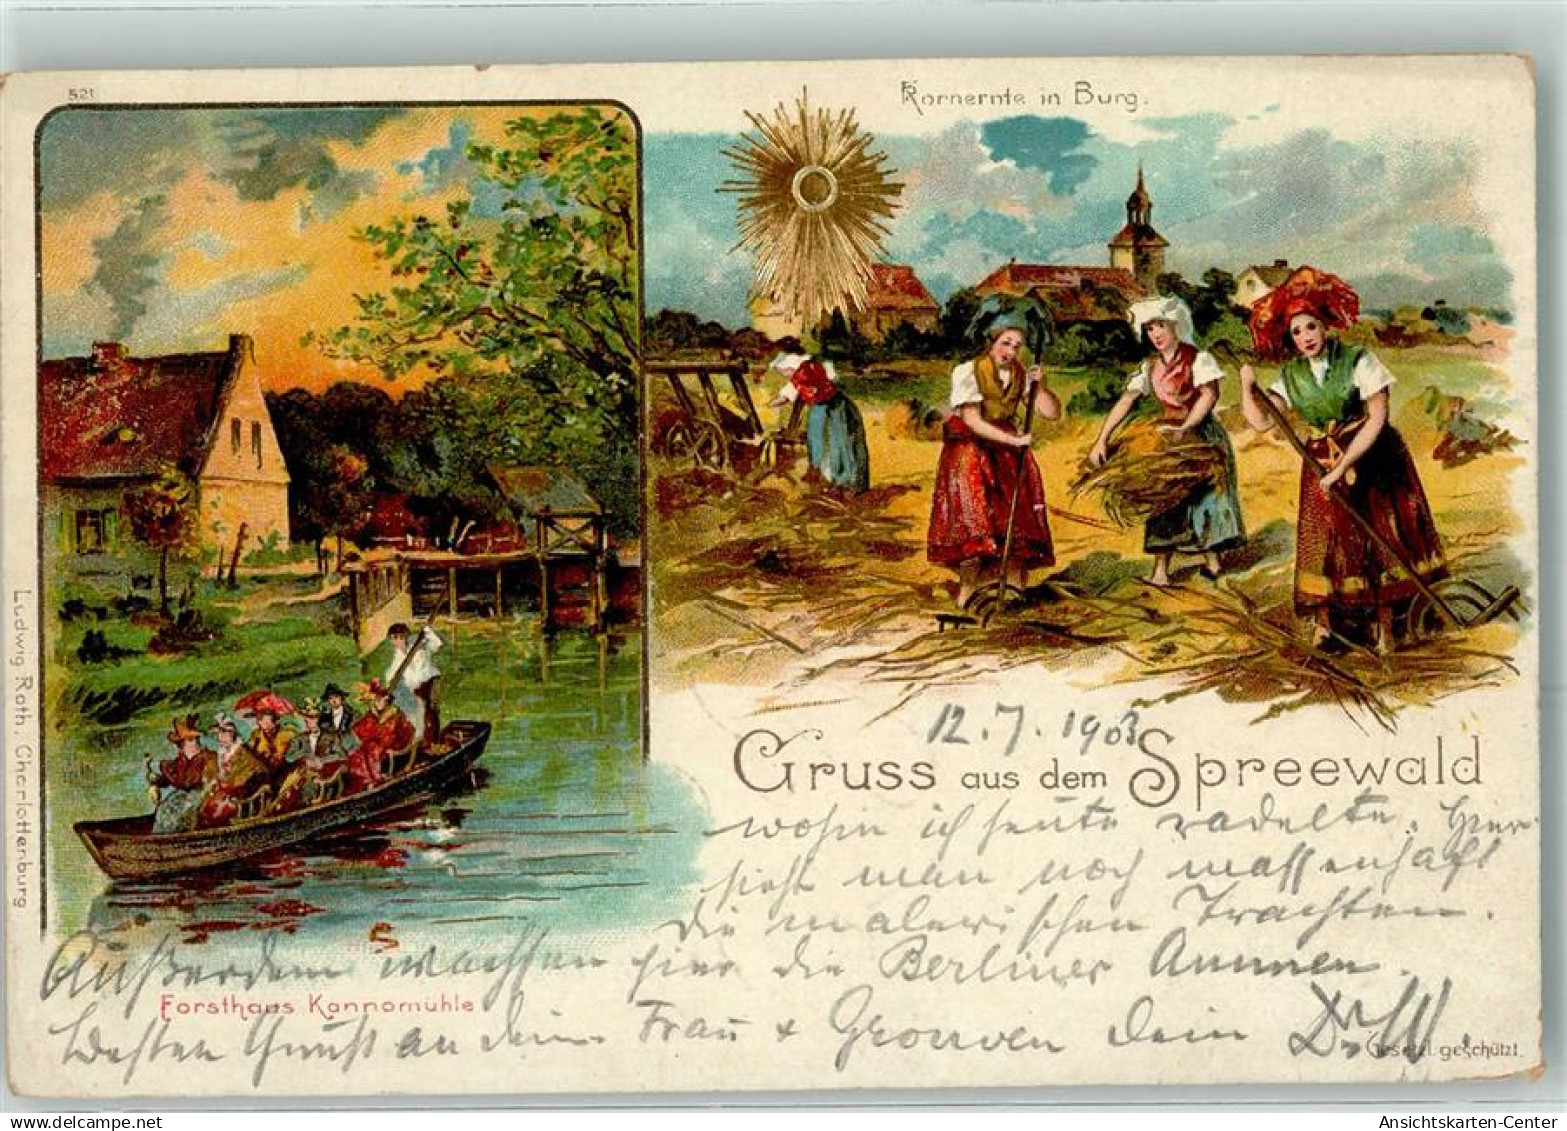 521
Kornernte in Burg.
Ludwig Rath, Charlottenburg
12.7.1903
Gruss aus dem Spreewald
wohin ich heute radelte. Hier
sieht man noch massenhaft
die malerischen Trachten.
Außerdem wachsen hier die Berliner Ammen.
Forsthaus Kannomühle
Besten Gruß an deine Frau + Dein Dr
Gesetzl. geschützt.
Ansichtskarten-Center